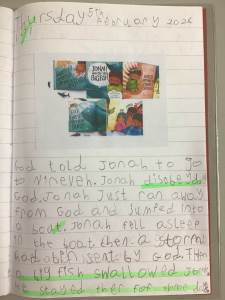 Thursday 5th
February 2026
JONAH
God told Jonah to go
to Nineveh. Jonah disobeyed
God. Jonah Just ran away
from God and Jumped into
a boat. Jonah fell asleep
in the boat then a storm
had a bin sent by God. Then
a big fish swallowed Jona
he stayed ther for three